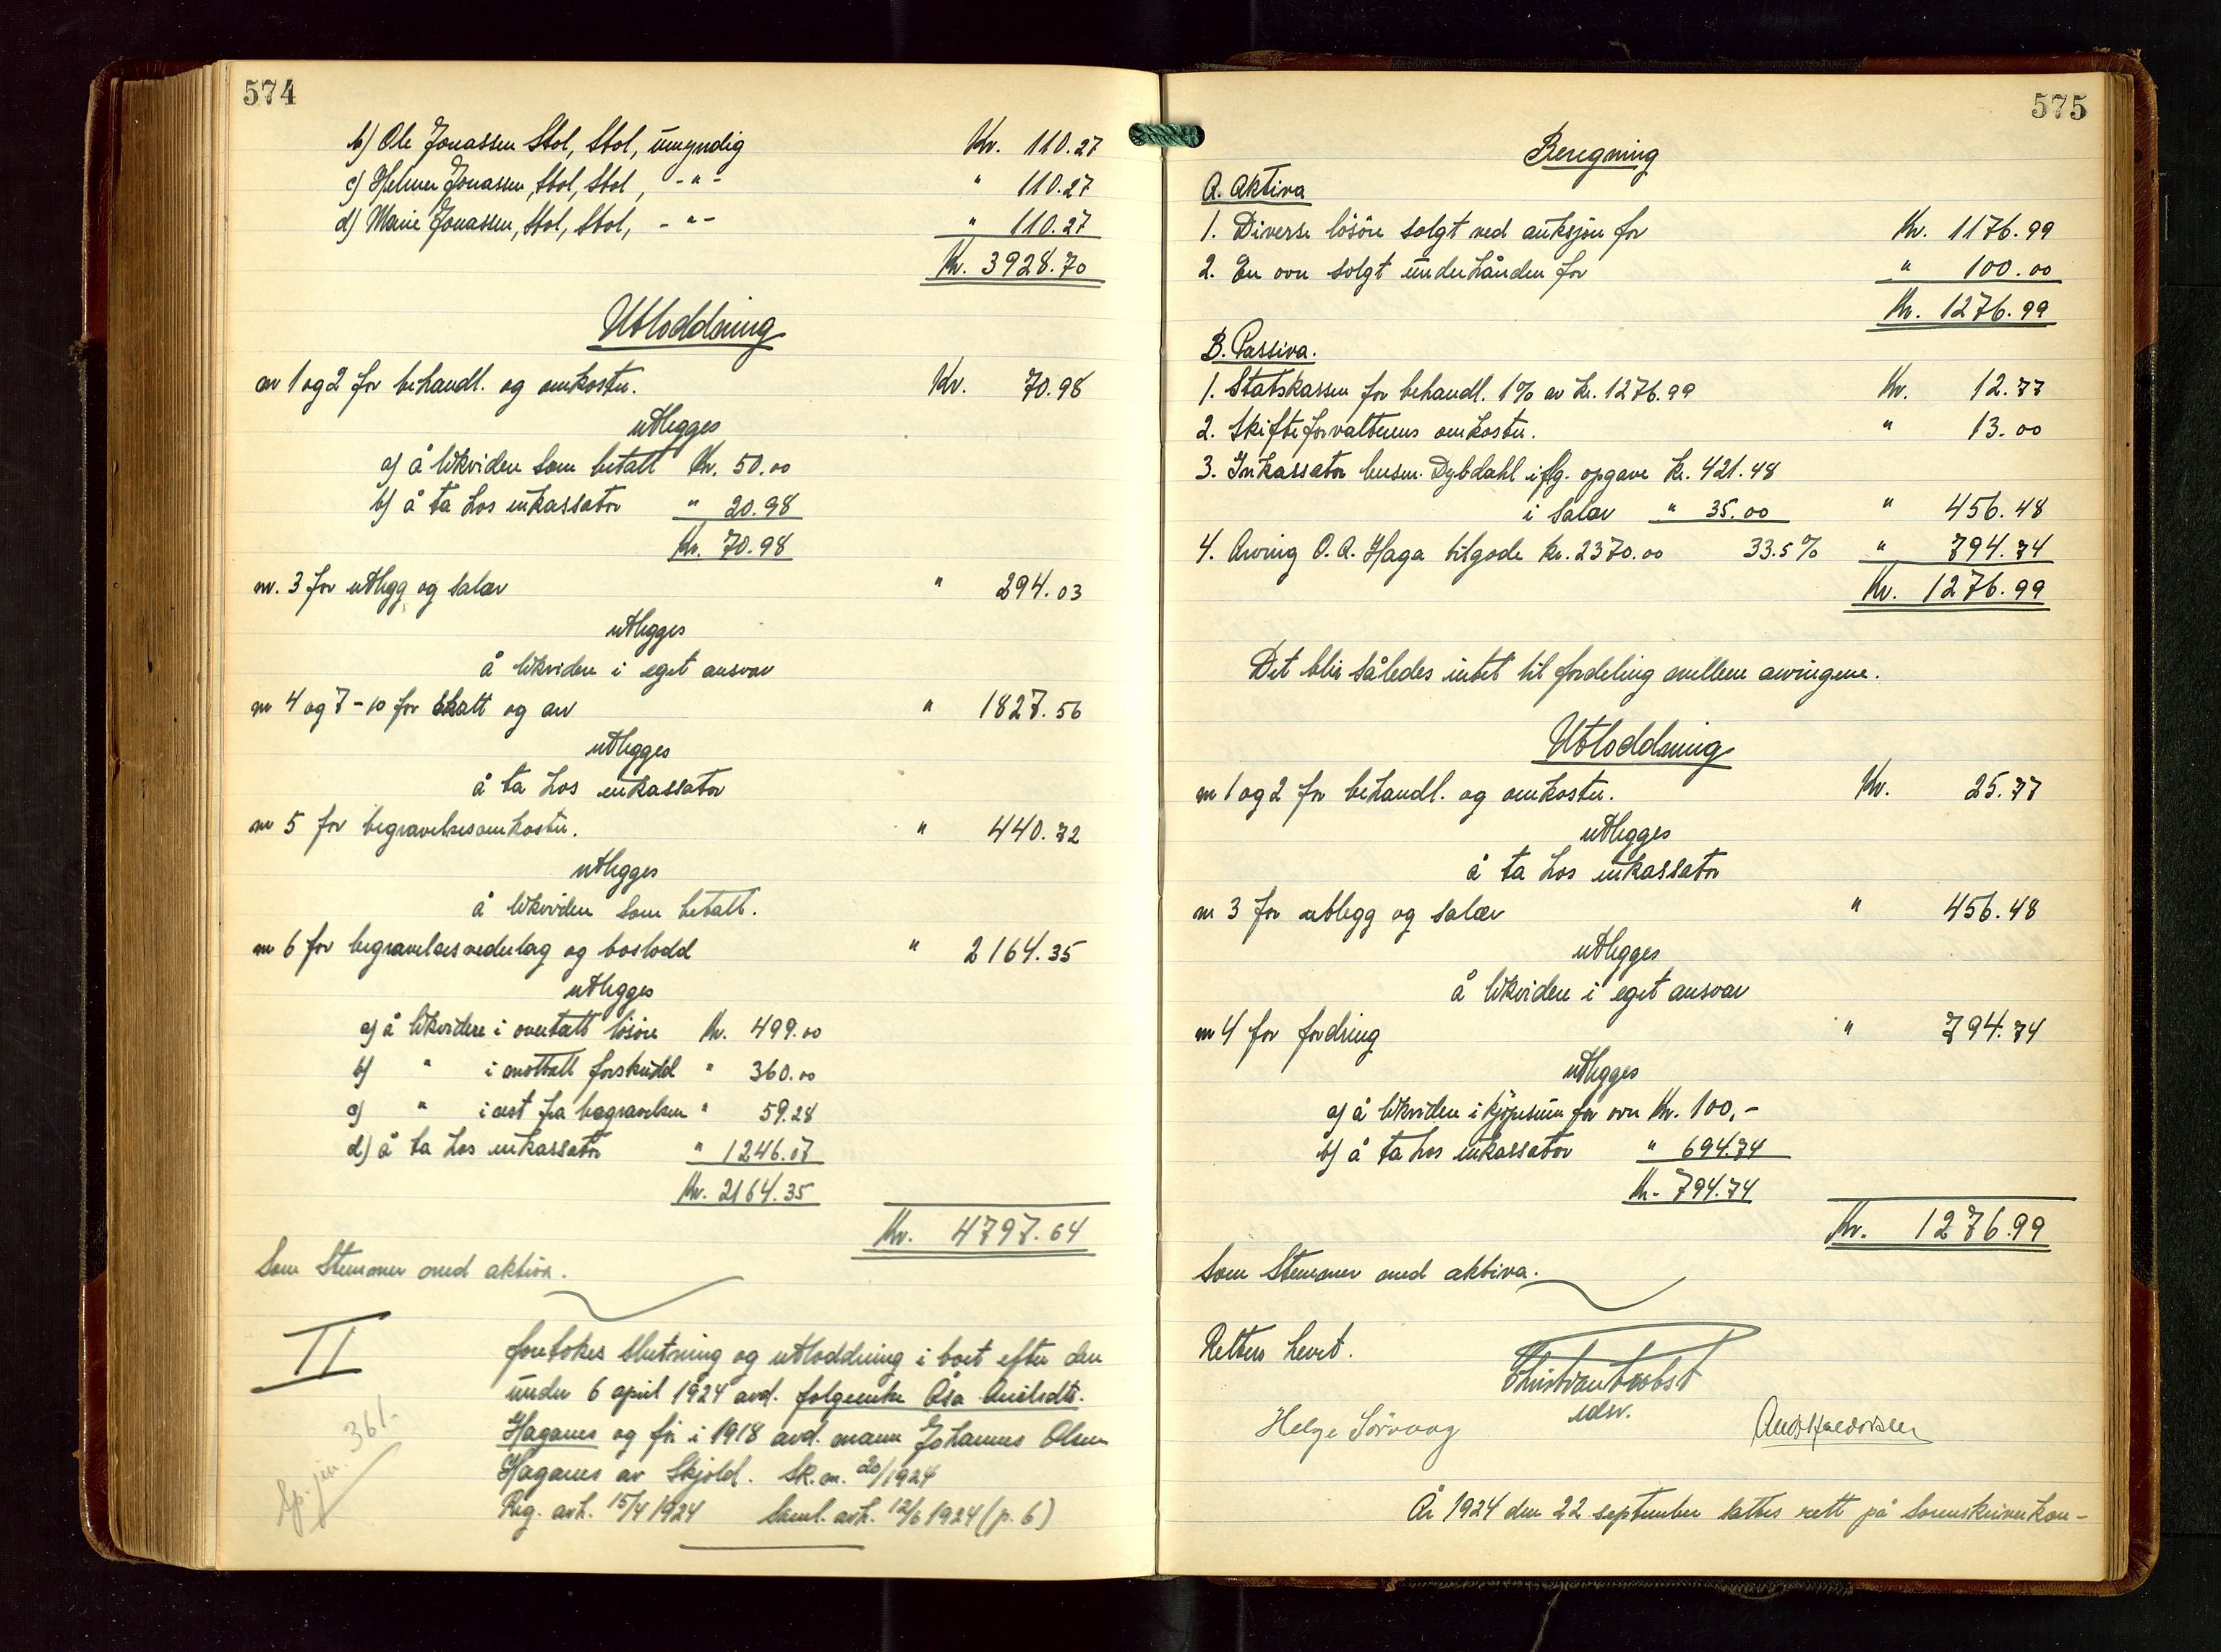 574
b) Ole Jonassen Stol, Stol, umyndig Kr. 110.27
c) Helmer Jonassen, Stol, Stol, -"- " 110.27
d) Marie Jonassen, Stol, Stol, -"- " 110.27
Kr. 3928.70
Utloddning
nr 1 og 2 for behandl. og omkostn. Kr. 70.98
utlegges
a) å likvidere som betalt Kr. 50.00
b) å ta hos inkassator " 20.98
Kr. 70.98
nr. 3 for utlegg og salær " 294.03
utlegges
å likvidere i eget ansvar
nr 4 og 7-10 for skatt og arv " 1827.56
utlegges
å ta hos inkassator
nr 5 for begravelsesomkostn. " 440.72
utlegges
å likvidere som betalt.
nr 6 for begravelsesvederlag og boslodd " 2164.35
utlegges
a) å likvidere i overtatt lösöre Kr. 499.00
b) " i mottatt forskudd " 360.00
c) " i rest fra begravelsen " 59.28
d) å ta hos inkassator " 1246.07
Kr. 2164.35
Kr. 4797.64
Som stemmer med aktiva.
II
foretokes slutning og utloddning i boet efter den
under 6 april 1924 avd. folgeenke Åsa
Haganes og för i 1918 avd. mann Johannes Olsen
Haganes av Skjold. Sk. nr. 20/1924
Reg. avh. 15/4 1924 Saml. avh. 12/6 1924 (p. 6)
361.
575
Beregning
A. Aktiva
1. Diverse lösöre solgt ved auksjon for Kr. 1176.99
2. En ovn solgt underhånden for " 100.00
Kr. 1276.99
B. Passiva.
1. Statskassen for behandl. 1% av kr. 1276.99 Kr. 12.77
2. Skifteforvalterens omkostn. " 13.00
3. Inkassator lensm. Dybdahl iflg. opgave kr. 421.48
i salær " 35.00 " 456.48
4. Arving O. A. Haga tilgode kr. 2370.00 33.5% " 794.74
Kr. 1276.99
Det blir således intet til fordeling mellem arvingene.
Utloddning
nr 1 og 2 for behandl. og omkostn. Kr. 25.77
utlegges
å ta hos inkassator
nr 3 for utlegg og salær " 456.48
utlegges
å likvidere i eget ansvar
nr 4 for fordring " 794.74
utlegges
a) å likvidere i kjöpesum for ovn Kr. 100,-
b) å ta hos inkassator " 694.74
Kr. 794.74
Kr. 1276.99
Som stemmer med aktiva.
Retten hevet.
Christian Probst
edsv.
Helge Sörvaag
År 1924 den 22 september sattes rett på Sorenskriverkon-